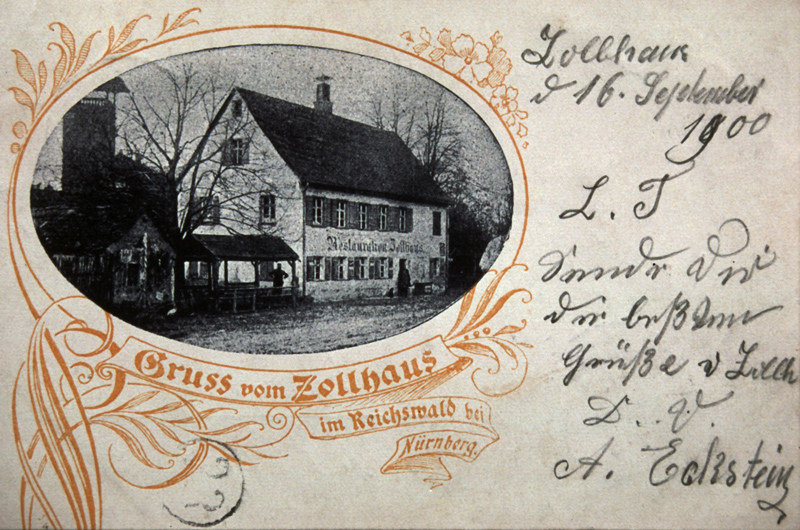 Restauration Zollhaus
Gruss vom Zollhaus
im Reichswald bei
Nürnberg.
Zollhaus
d 16. September
1900
L. T
Sende Dir
die beßten
Grüße v Zollh
D. V.
A. Eckstein